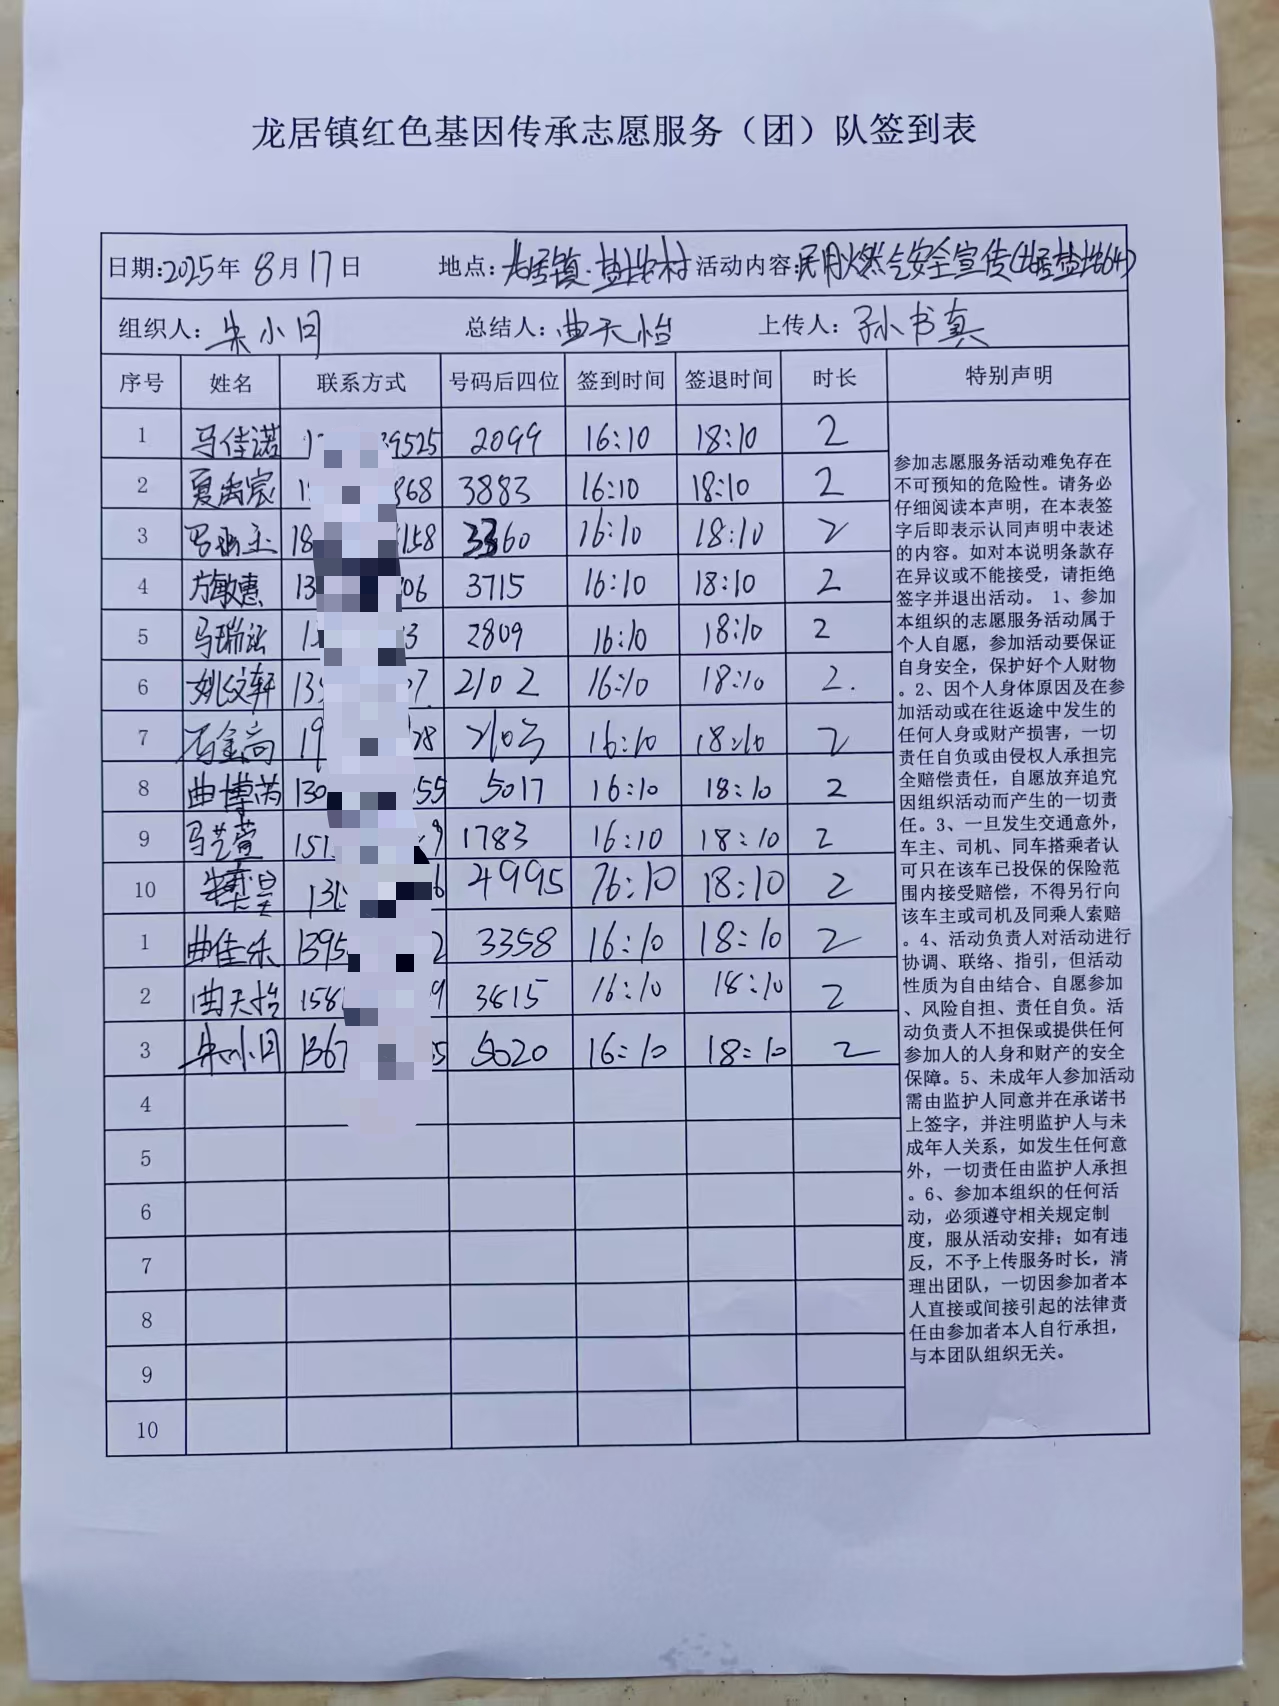 龙居镇红色基因传承志愿服务（团）队签到表
日期:2025年 8月17日 地点:龙居镇·盐坨村 活动内容:民用燃气安全宣传
组织人:朱小同 总结人:曲天怡 上传人:孙书真
序号 姓名 联系方式 号码后四位 签到时间 签退时间 时长 特别声明
1 马佳诺 39525 2099 16:10 18:10 2
2 夏禹宸 868 3883 16:10 18:10 2
3 18 158 3360 16:10 18:10 2
4 方敏惠 13 06 3715 16:10 18:10 2
5 马瑞 3 2809 16:10 18:10 2
6 姚文轩 135 7 2102 16:10 18:10 2.
7 石金尚 19 28 2103 16:10 18:10 2
8 曲博芮 130 55 5017 16:10 18:10 2
9 马艺萱 151 9 1783 16:10 18:10 2
10 13 6 4995 16:10 18:10 2
1 曲佳乐 1395 2 3358 16:10 18:10 2
2 曲天怡 158 9 3815 16:10 18:10 2
3 朱小同 1367 5 5020 16:10 18:10 2
4
5
6
7
8
9
10
参加志愿服务活动难免存在
不可预知的危险性。请务必
仔细阅读本声明，在本表签
字后即表示认同声明中表述
的内容。如对本说明条款存
在异议或不能接受，请拒绝
签字并退出活动。 1、参加
本组织的志愿服务活动属于
个人自愿，参加活动要保证
自身安全，保护好个人财物
。2、因个人身体原因及在参
加活动或在往返途中发生的
任何人身或财产损害，一切
责任自负或由侵权人承担完
全赔偿责任，自愿放弃追究
因组织活动而产生的一切责
任。3、一旦发生交通意外，
车主、司机、同车搭乘者认
可只在该车已投保的保险范
围内接受赔偿，不得另行向
该车主或司机及同乘人索赔
。4、活动负责人对活动进行
协调、联络、指引，但活动
性质为自由结合、自愿参加
、风险自担、责任自负。活
动负责人不担保或提供任何
参加人的人身和财产的安全
保障。5、未成年人参加活动
需由监护人同意并在承诺书
上签字，并注明监护人与未
成年人关系，如发生任何意
外，一切责任由监护人承担
。6、参加本组织的任何活
动，必须遵守相关规定制
度，服从活动安排；如有违
反，不予上传服务时长，清
理出团队，一切因参加者本
人直接或间接引起的法律责
任由参加者本人自行承担，
与本团队组织无关。